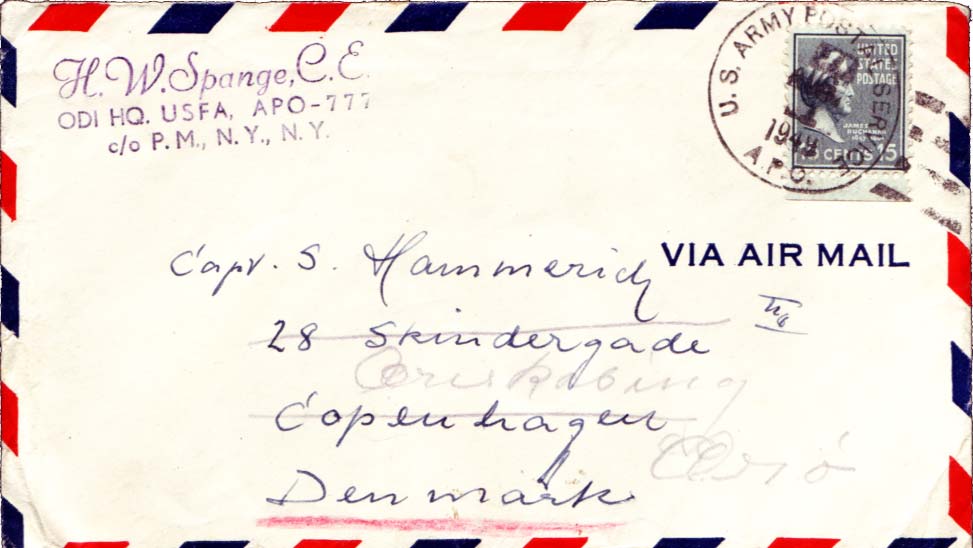 H. W. Spange, C. E.
ODI HQ. USFA, APO-777
c/o P. M., N. Y., N. Y.
U. S. ARMY POSTAL SERVICE
AUG
1949
A.P.O.
UNITED
STATES
POSTAGE
JAMES
BUCHANAN
15 CENTS 15
VIA AIR MAIL
Capt. S. Hammerich
28 Skindergade
Copenhagen
Denmark